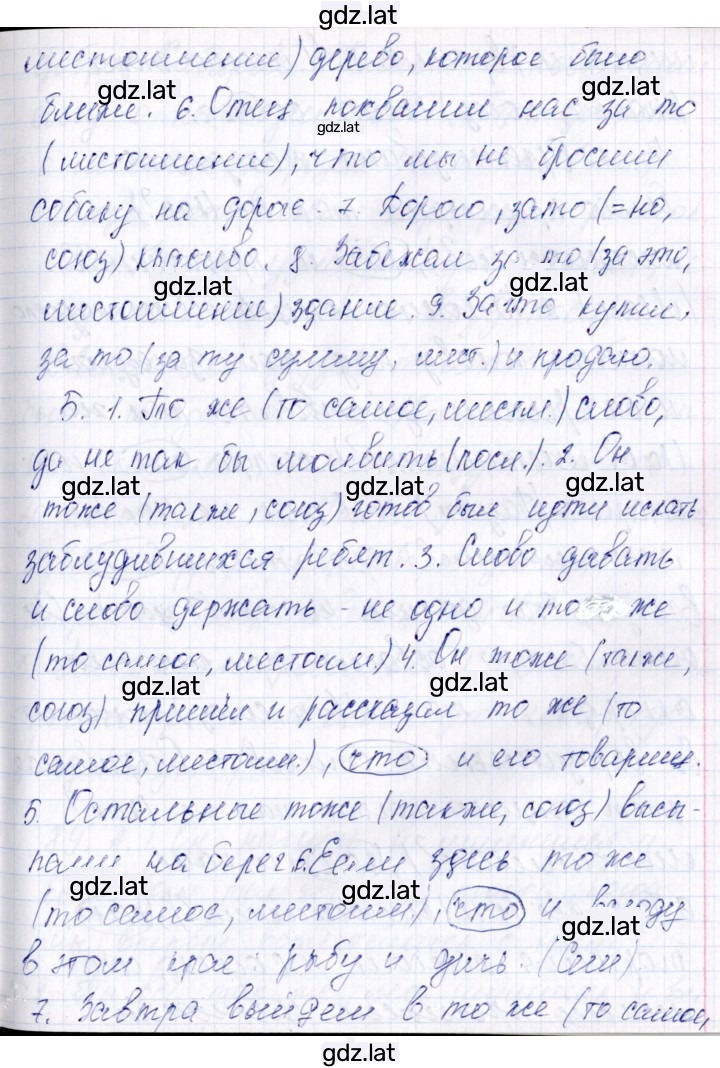 gdz.lat
местоимение) дерево, которое было
gdz.lat gdz.lat
ближе. 6. Отец похвалил нас за то
gdz.lat
(местоимение), что мы не бросили
собаку на дороге. 7. Дорого, зато (=но,
союз) красиво. 8. Забежал за то (за это,
gdz.lat gdz.lat
местоимение) здание. 9. За что купил,
за то (за ту сумму, мест.) и продаю.
Б. 1. То же (то самое, местм.) слово,
да не так бы молвить (посл.). 2. Он
gdz.lat gdz.lat gdz.lat
тоже (также, союз) готов был идти искать
заблудившихся ребят. 3. Слово давать
и слово держать - не одно и то же
(то самое, местоим.) 4. Он тоже (также,
gdz.lat gdz.lat
союз) пришёл и рассказал то же (то
самое, местоим.), что и его товарищ.
5. Остальные тоже (также, союз) высы-
пали на берег. 6. Ели здесь то же
gdz.lat gdz.lat
(то самое, местоим.), что и всюду
gdz.lat
в этом крае: рыбу и дичь.
7. Завтра выйдем в то же (то самое,
gdz.lat